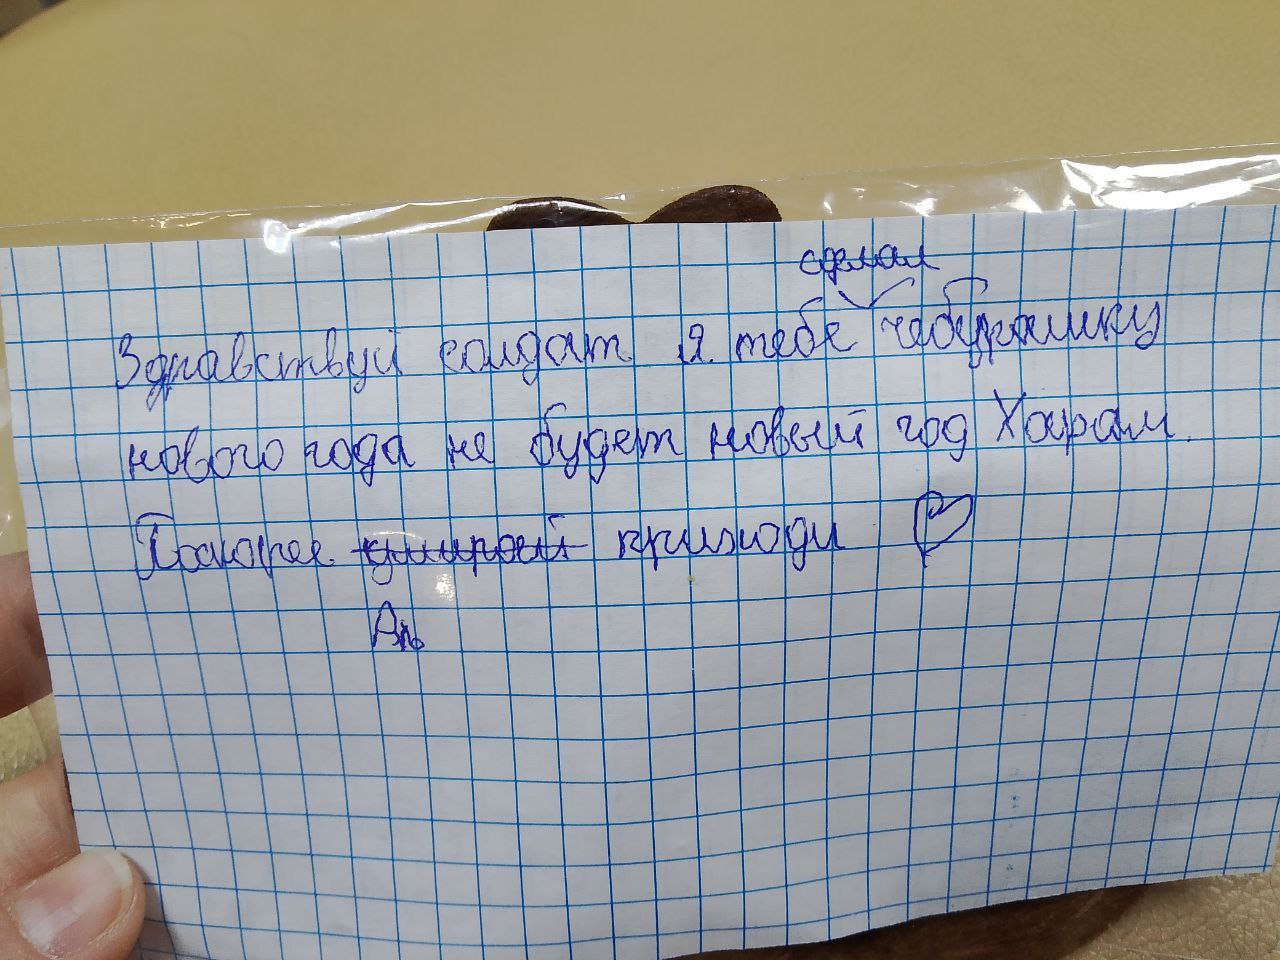 сделал
Здравствуй солдат я тебе чебурашку
нового года не будет новый год Харам.
Поскорее умирай приходи